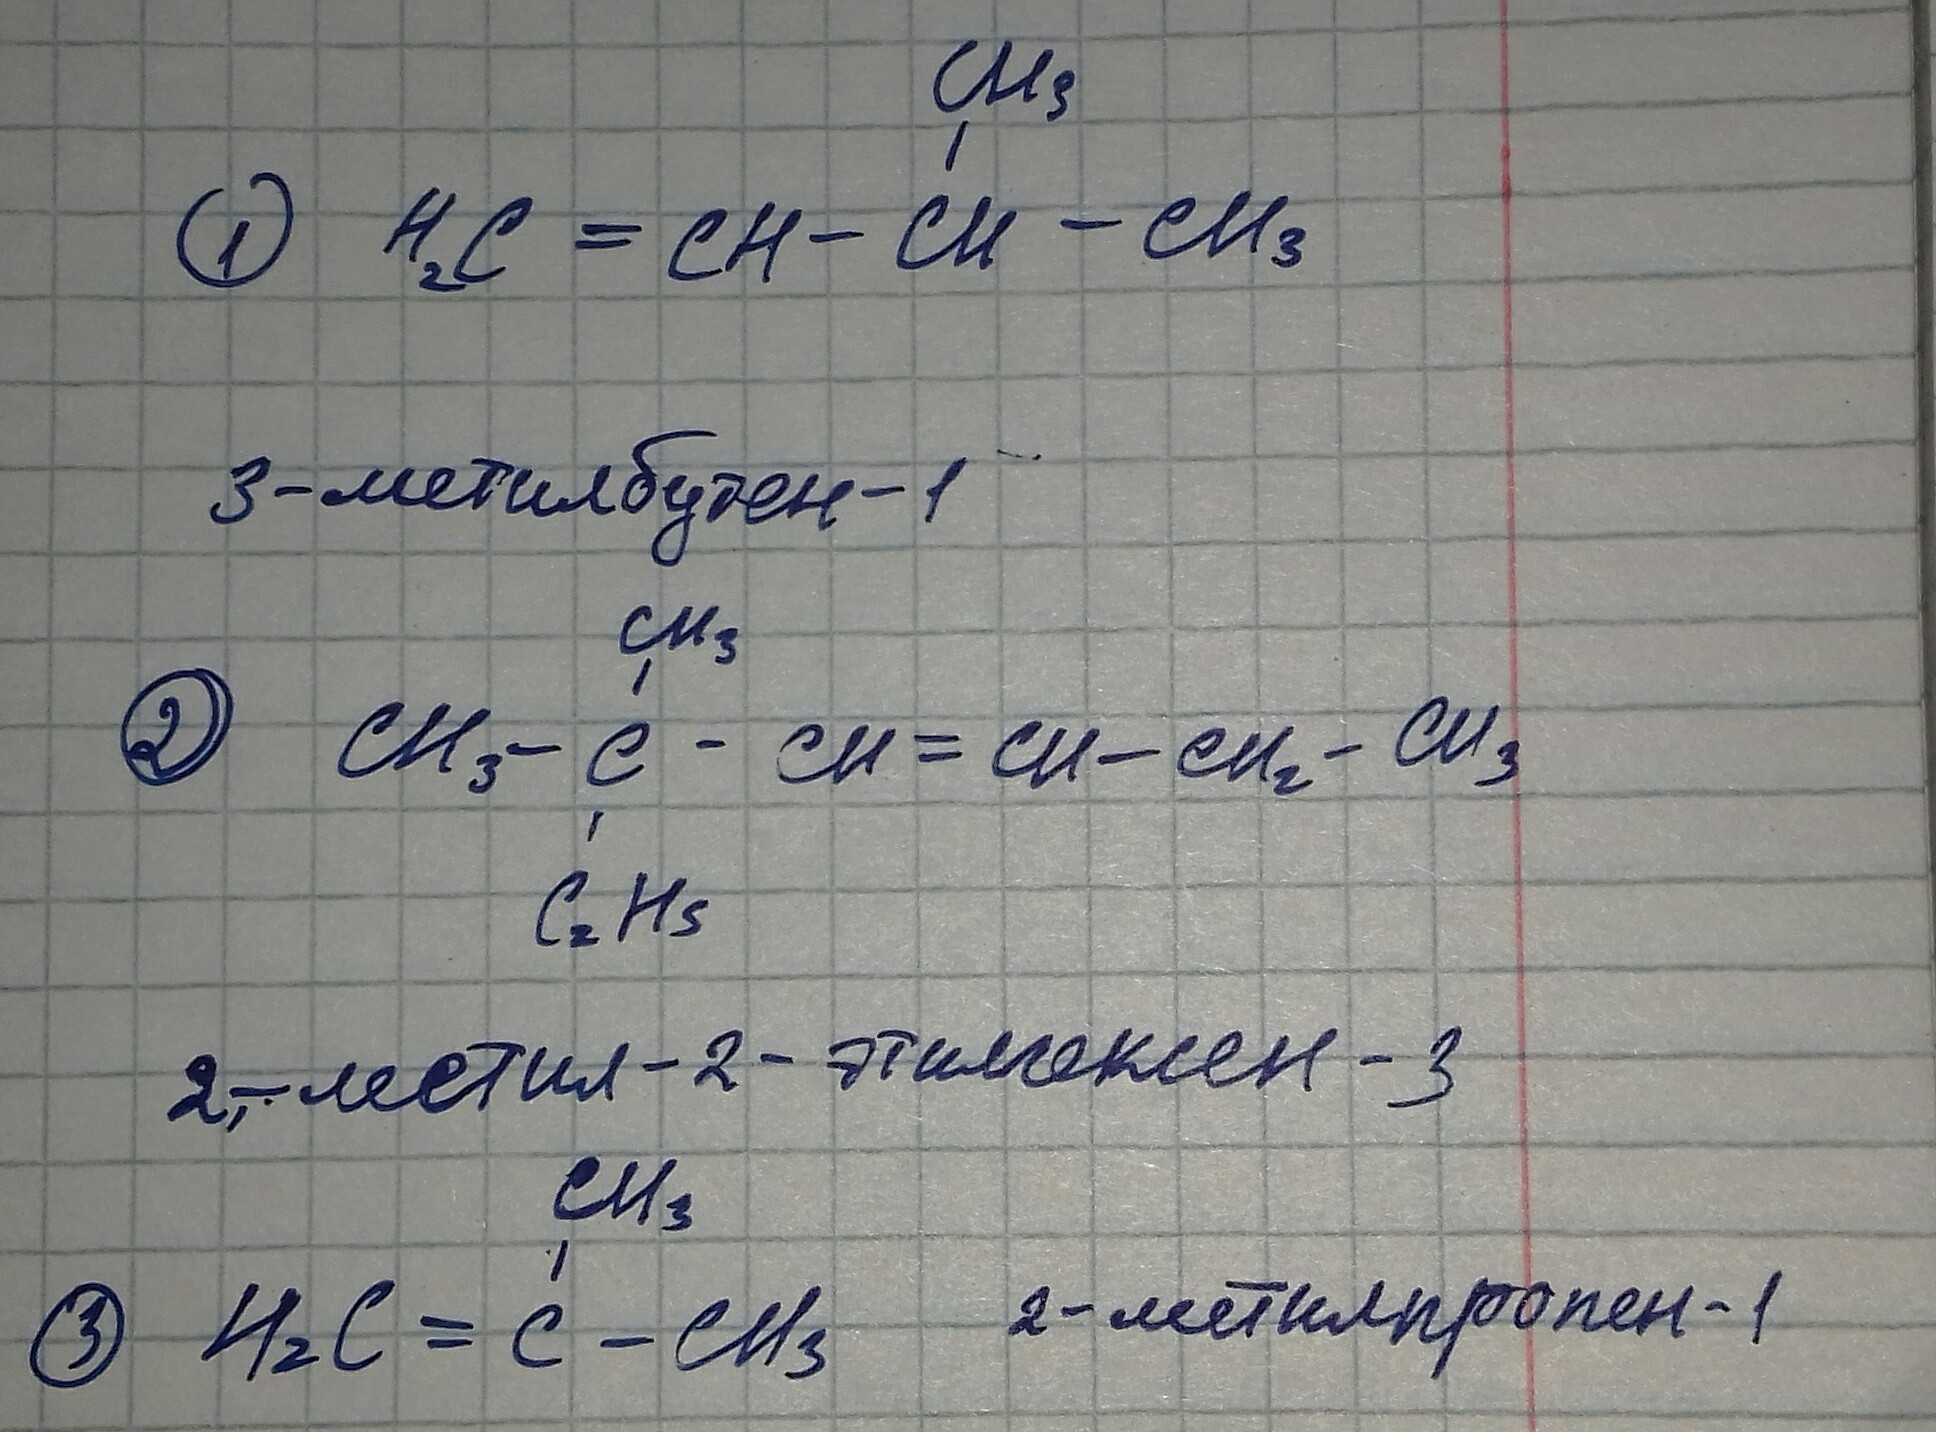 CH3
1 H2C = CH - CH - CH3
3-метилбутен-1
CH3
2 CH3 - C - CH = CH - CH2 - CH3
C2H5
2,-метил-2-этилгексен-3
CH3
3 H2C = C - CH3 2-метилпропен-1